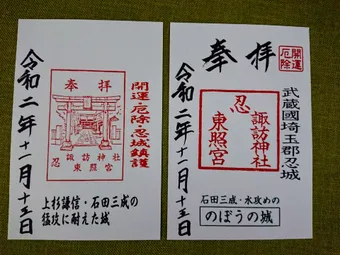 開運
厄除
奉拝
武蔵國埼玉郡忍城
諏訪神社
忍
東照宮
石田三成・水攻めの
のぼうの城
令和二年十一月十三日
開運・厄除・忍城鎮護
奉拝
忍 諏訪神社
東照宮
上杉謙信・石田三成の
猛攻に耐えた城
令和二年十一月十三日